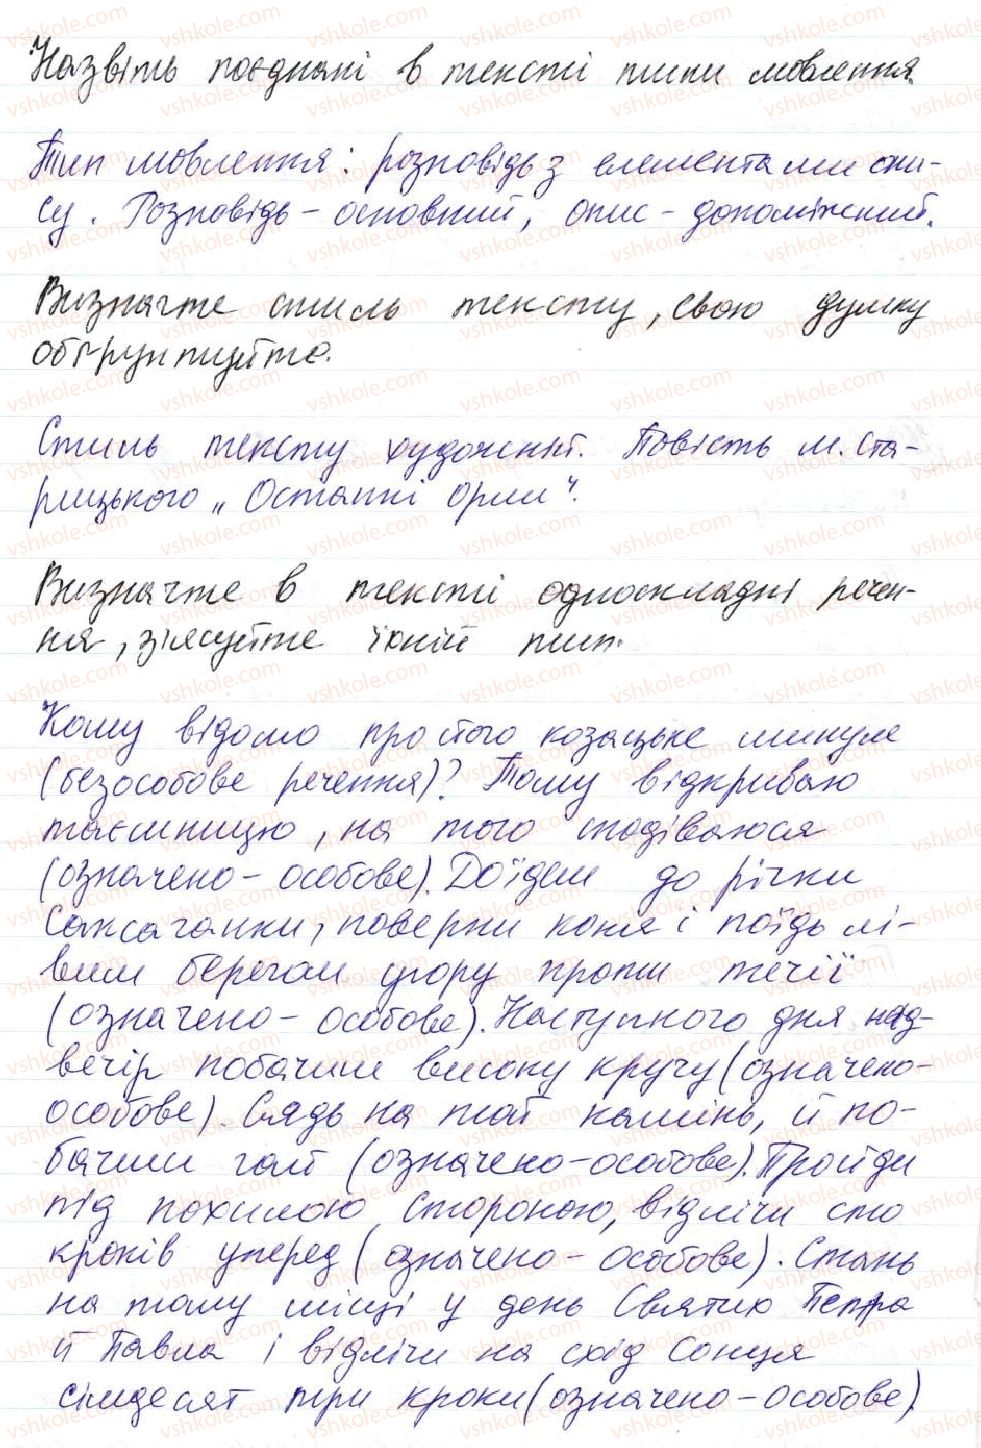 Назвіть поєднані в тексті типи мовлення.
Тип мовлення: розповідь з елементами опи-
су. Розповідь - основний, опис - допоміжний.
Визначте стиль тексту, свою думку
обґрунтуйте.
Стиль тексту художній. Повість М. Ста-
рицького „Останні орли".
Визначте в тексті односкладні речен-
ня, з'ясуйте їхній тип.
Кому відомо простого козацьке минуле
(безособове речення)? Тому відкриваю
таємницю, на того сподіваюся
(означено-особове). Доїдеш до річки
Саксаганки, поверни коня і поїдь лі-
вим берегом угору проти течії
(означено-особове). Наступного дня над-
вечір побачиш високу кручу (означено-
особове). Сядь на той камінь, й по-
бачиш гай (означено-особове). Пройди
під похилою стороною, відлічи сто
кроків уперед (означено-особове). Стань
на тому місці у день Святих Петра
й Павла і відлічи на схід Сонця
сімдесят три кроки (означено-особове)